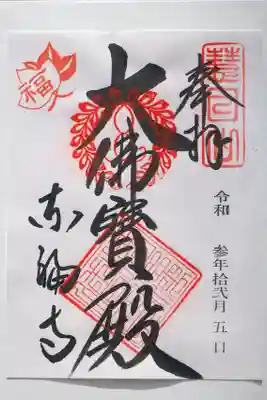 慧日山
奉拝
令和 参年拾弐月 五日
大佛寶殿
東福寺
福